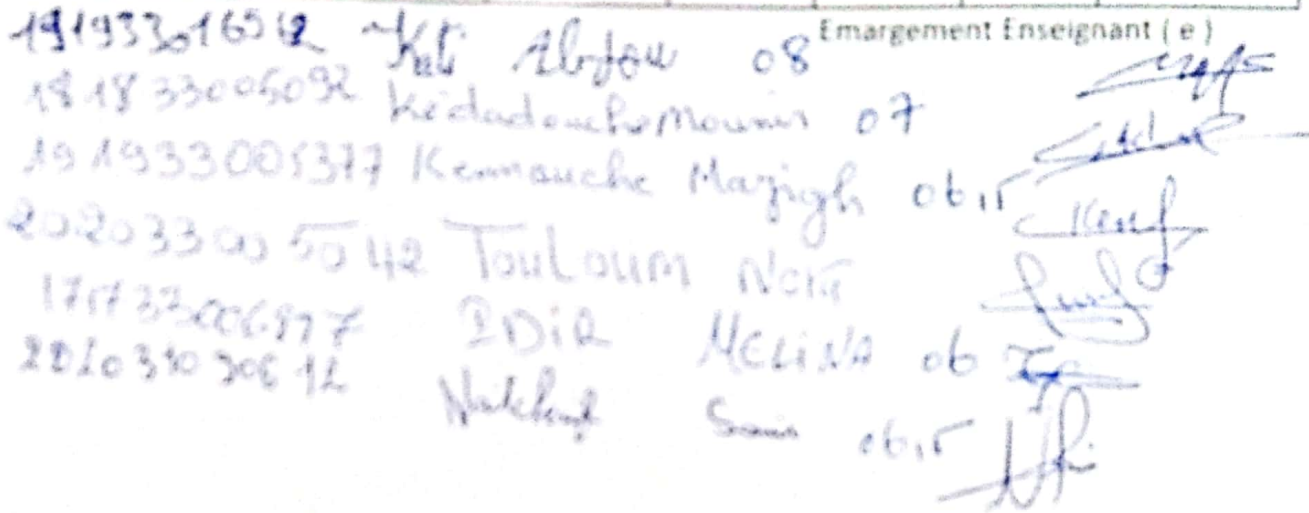 Emargement Enseignant ( e )
191933016512 Keti 08
181833005092 Kedadouche Mounir 07
191933005377 Kennouche Mazigh 06,5
202033005042 Touloum
171733006897 IDIR MELINA 06
06,5